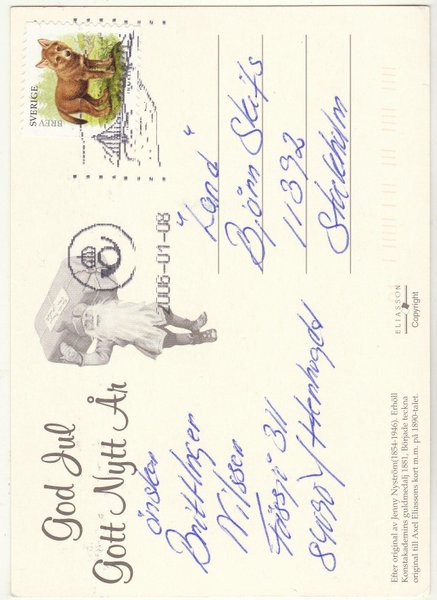 SVERIGE
BREV
2006-01-08
"Land"
Björn Skifs
11392
Stockholm
God Jul
Gott Nytt År
önskar
Britt Inger
Nilsson
Fössjö 311
84090 Y Henvåget
ELIASSON
Copyright
Efter original av Jenny Nyström(1854-1946). Erhöll
Konstakademins guldmedalj 1881, Började teckna
original till Axel Eliassons kort m.m. på 1890-talet.